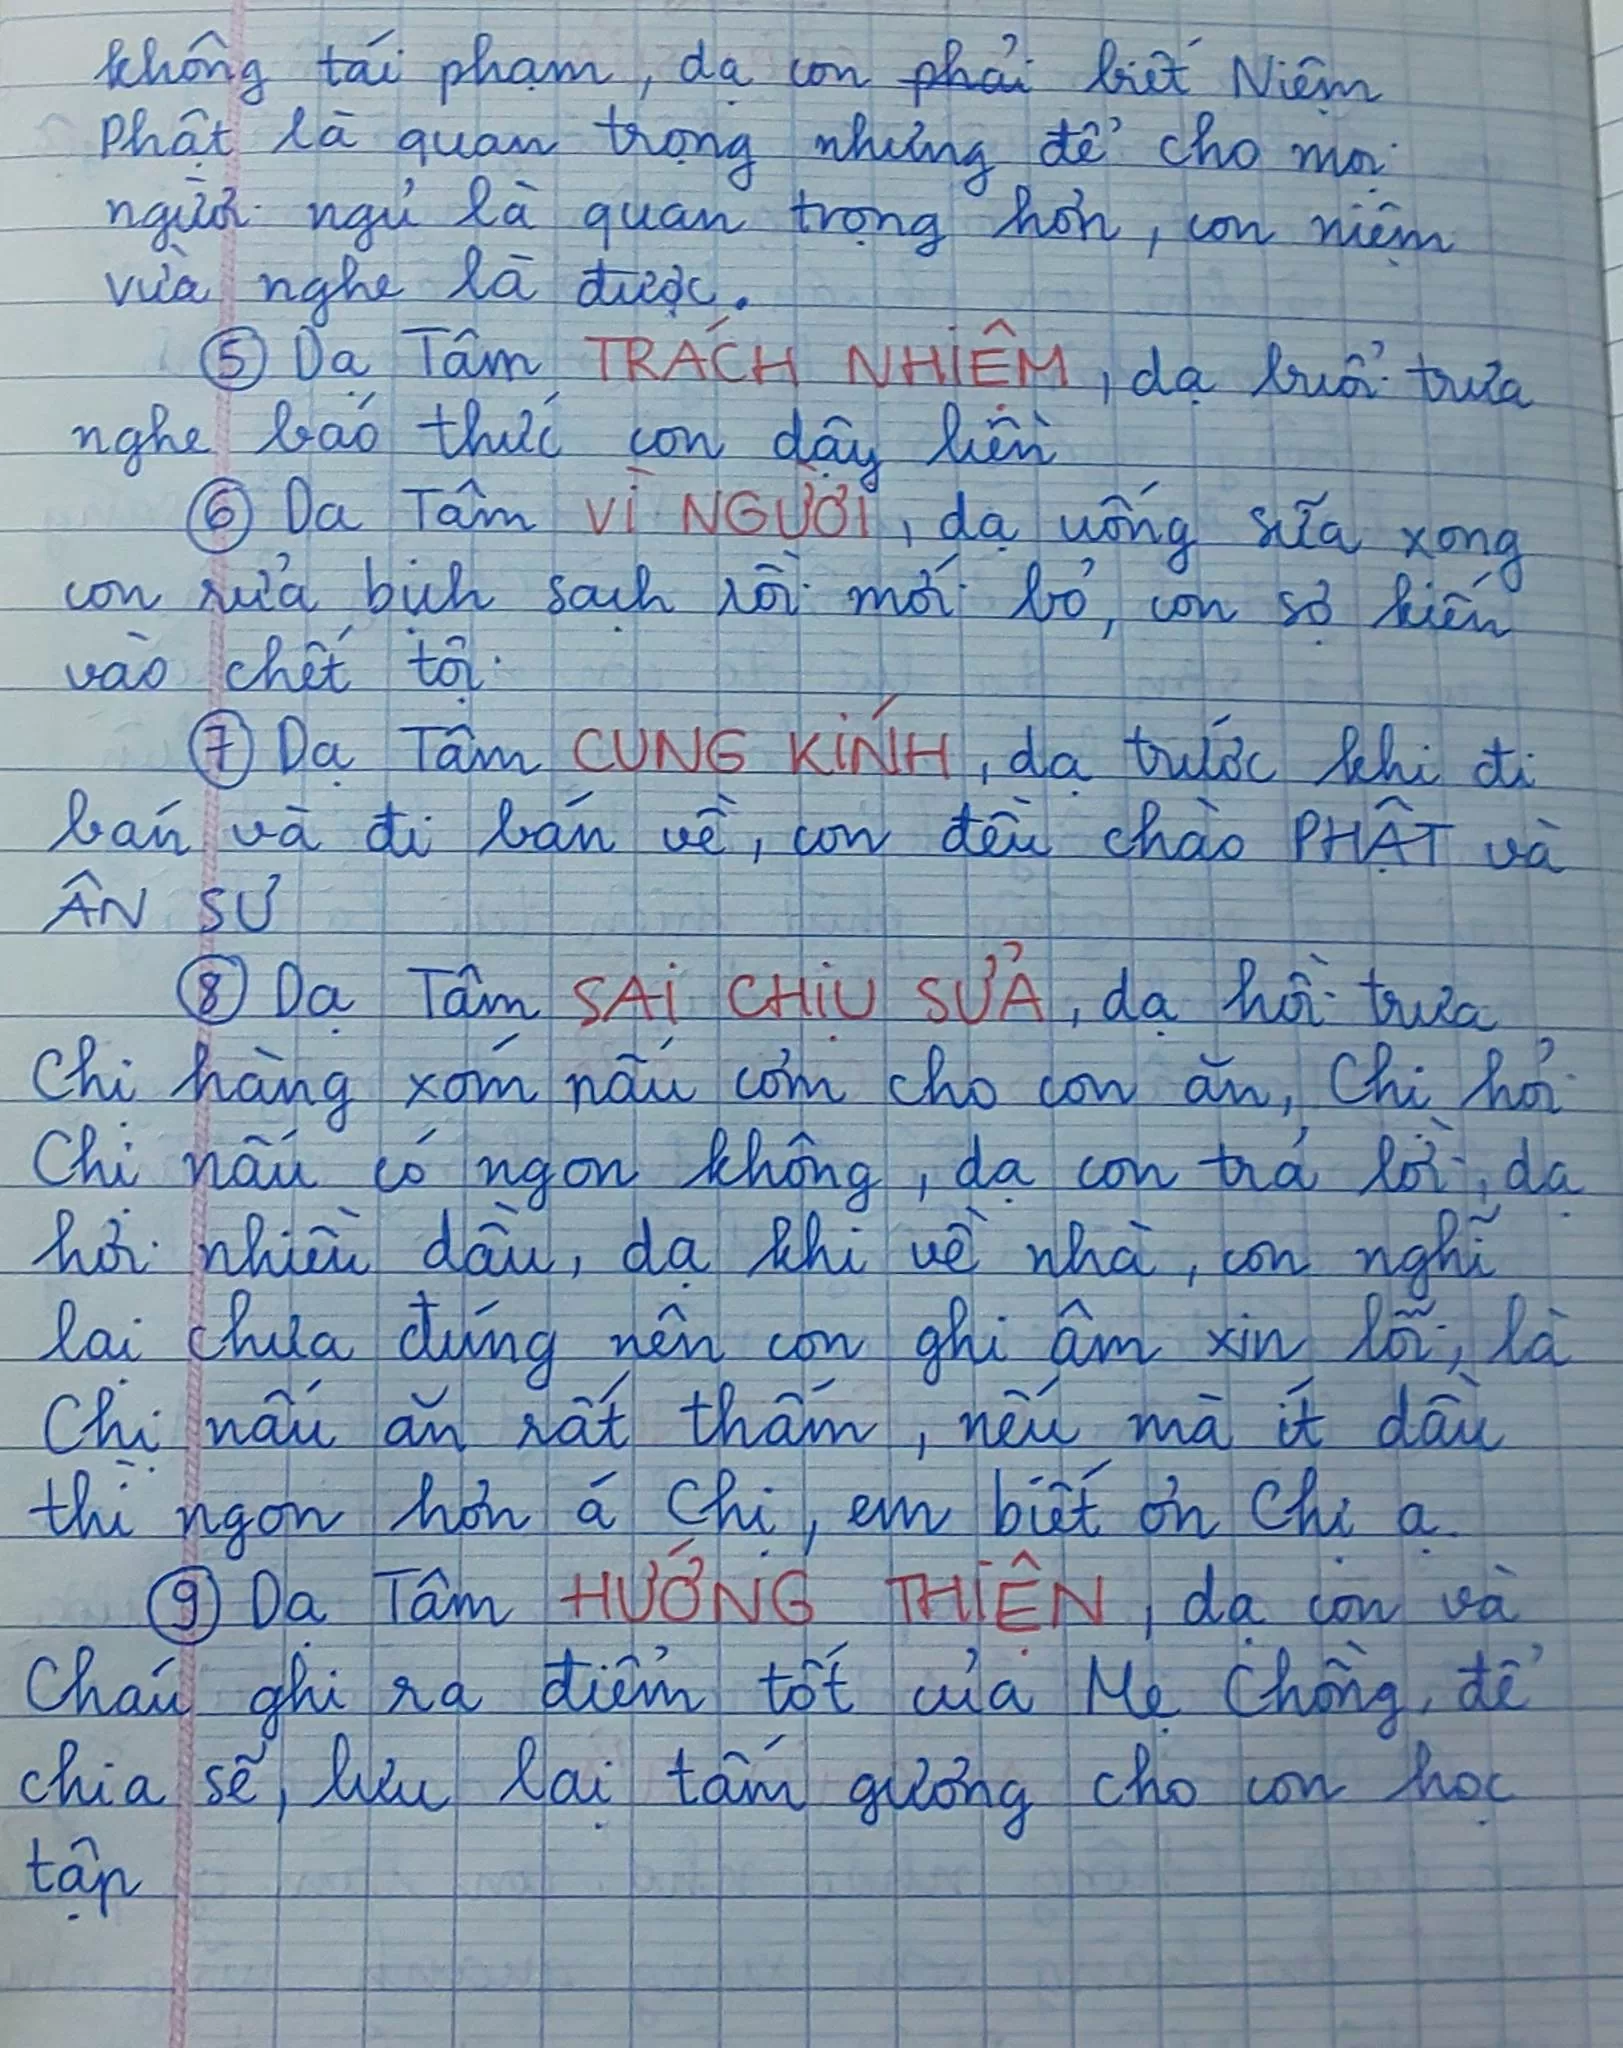 không tái phạm, dạ con phải biết Niệm
Phật là quan trọng nhưng để cho mọi
người ngủ là quan trọng hơn, con niệm
vừa nghe là được.
⑤ Dạ Tâm TRÁCH NHIỆM, dạ buổi trưa
nghe báo thức con dậy liền
⑥ Dạ Tâm VÌ NGƯỜI, dạ uống sữa xong
con rửa bịch sạch rồi mới bỏ, con sợ kiến
vào chết tội
⑦ Dạ Tâm CUNG KÍNH, dạ trước khi đi
bán và đi bán về, con đều chào PHẬT và
ÂN SƯ
⑧ Dạ Tâm SAI CHỊU SỬA, dạ hồi trưa
Chị hàng xóm nấu cơm cho con ăn, Chị hỏi
Chị nấu có ngon không, dạ con trả lời, dạ
hơi nhiều dầu, dạ khi về nhà, con nghĩ
lại chưa đúng nên con ghi âm xin lỗi, là
Chị nấu ăn rất thấm, nếu mà ít dầu
thì ngon hơn á Chị, em biết ơn Chị ạ.
⑨ Dạ Tâm HƯỚNG THIỆN, dạ con và
Cháu ghi ra điểm tốt của Mẹ Chồng, để
chia sẽ, lưu lại tấm gương cho con học
tập